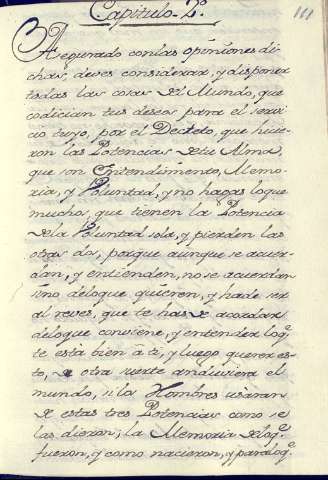 Capitulo 2º.
111
Asegurado conlas opiniones di
chas, deves considerar, y disponer
todas las cosas del Mundo, que
codician tus deseos para el servi
cio tuyo, por el Decreto, que hicie
ron las Potencias de tu Alma,
que son Entendimiento, Memo
ria, y Voluntad, y no hagas loque
muchos, que tienen la Potencia
dela Voluntad sola, y pierden las
otras dos, porque aunque se acuer
dan, y entienden, no se acuerdan
sino deloque quieren, y hade ser
al reves, que te has de acordar
deloque conviene, y entender loq.e
te está bien à ti, y luego querer es
to, de otra suerte anduviera el
mundo, si los Hombres usaran
de estas tres Potencias como se
las dieron; la Memoria de loq.e
fueron, y como nacieron, y para loq.e